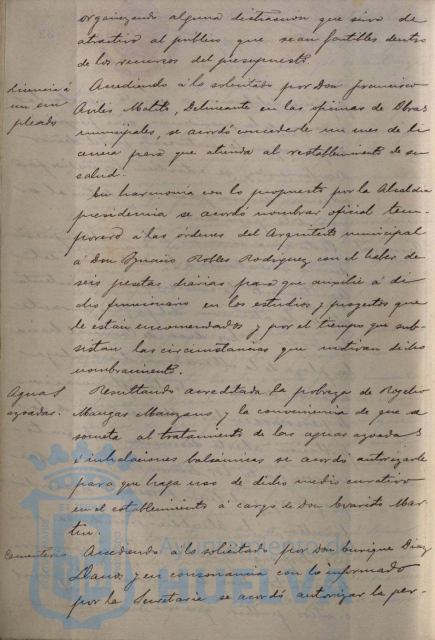 organizando alguna distracción que sirva de
atractivo al público que sean factibles dentro
de los recursos del presupuesto.
Licencia á
un em
pleado
Accediendo á lo solicitado por Don Francisco
Aviles Delineante en las oficinas de Obras
municipales, se acordó concederle un mes de li
cencia para que atienda al restablecimiento de su
salud.
En harmonia con lo propuesto por la Alcaldia
presidencia se acordó nombrar oficial tem-
porero á las órdenes del Arquitecto municipal
á Don Ignacio Robles Rodriguez con el haber de
seis pesetas diarias para que auxilie á di
cho funcionario en los estudios y proyectos que
le están encomendados y por el tiempo que sub-
sistan las circunstancias que motivan dicho
nombramiento.
Aguas
azoadas.
Resultando acreditada la pobreza de Rogelio
Mangas Manzano y la conveniencia de que se
someta al tratamiento de las aguas azoadas
é inhalaciones balsámicas se acordó autorizarle
para que haga uso de dicho medio curativo
en el establecimiento á cargo de Don Evaristo Mar-
tin.
Cementerio
Accediendo á lo solicitado por Don Enrique Diaz
y en consonancia con lo informado
por la Secretaria se acordó autorizar la per-
Ayuntamiento de
HUELVA